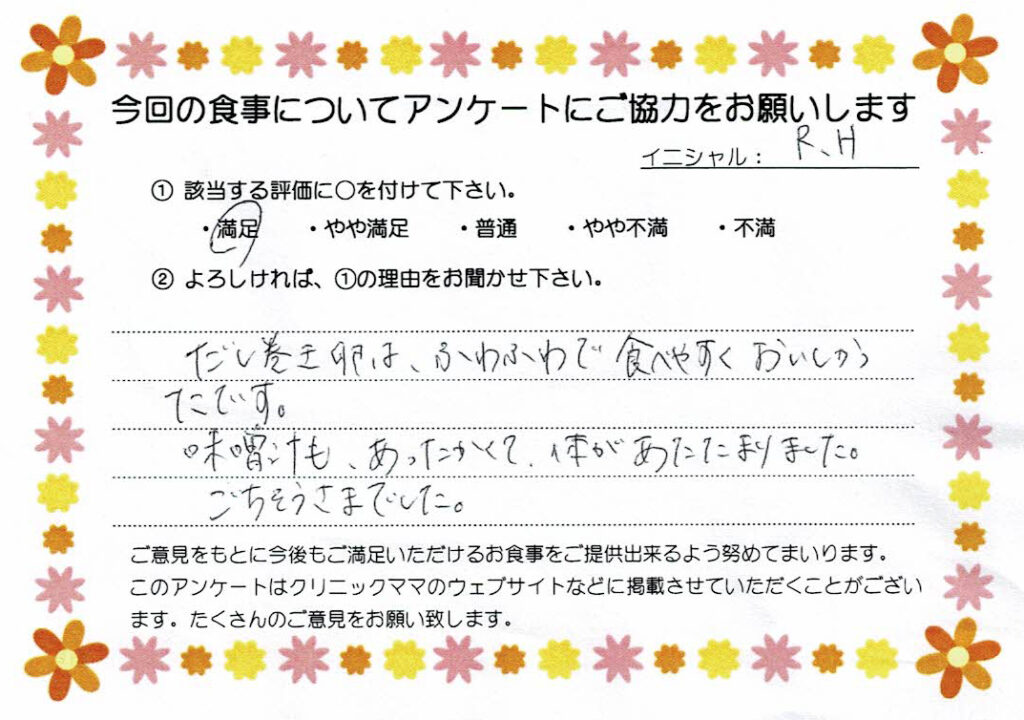 今回の食事についてアンケートにご協力をお願いします
イニシャル： R、H
① 該当する評価に○を付けて下さい。
・満足 ・やや満足 ・普通 ・やや不満 ・不満
② よろしければ、①の理由をお聞かせ下さい。
だし巻き卵は、ふわふわで食べやすくおいしかっ
たです。
味噌汁も、あったかくて、体があたたまりました。
ごちそうさまでした。
ご意見をもとに今後もご満足いただけるお食事をご提供出来るよう努めてまいります。
このアンケートはクリニックママのウェブサイトなどに掲載させていただくことがござい
ます。たくさんのご意見をお願い致します。